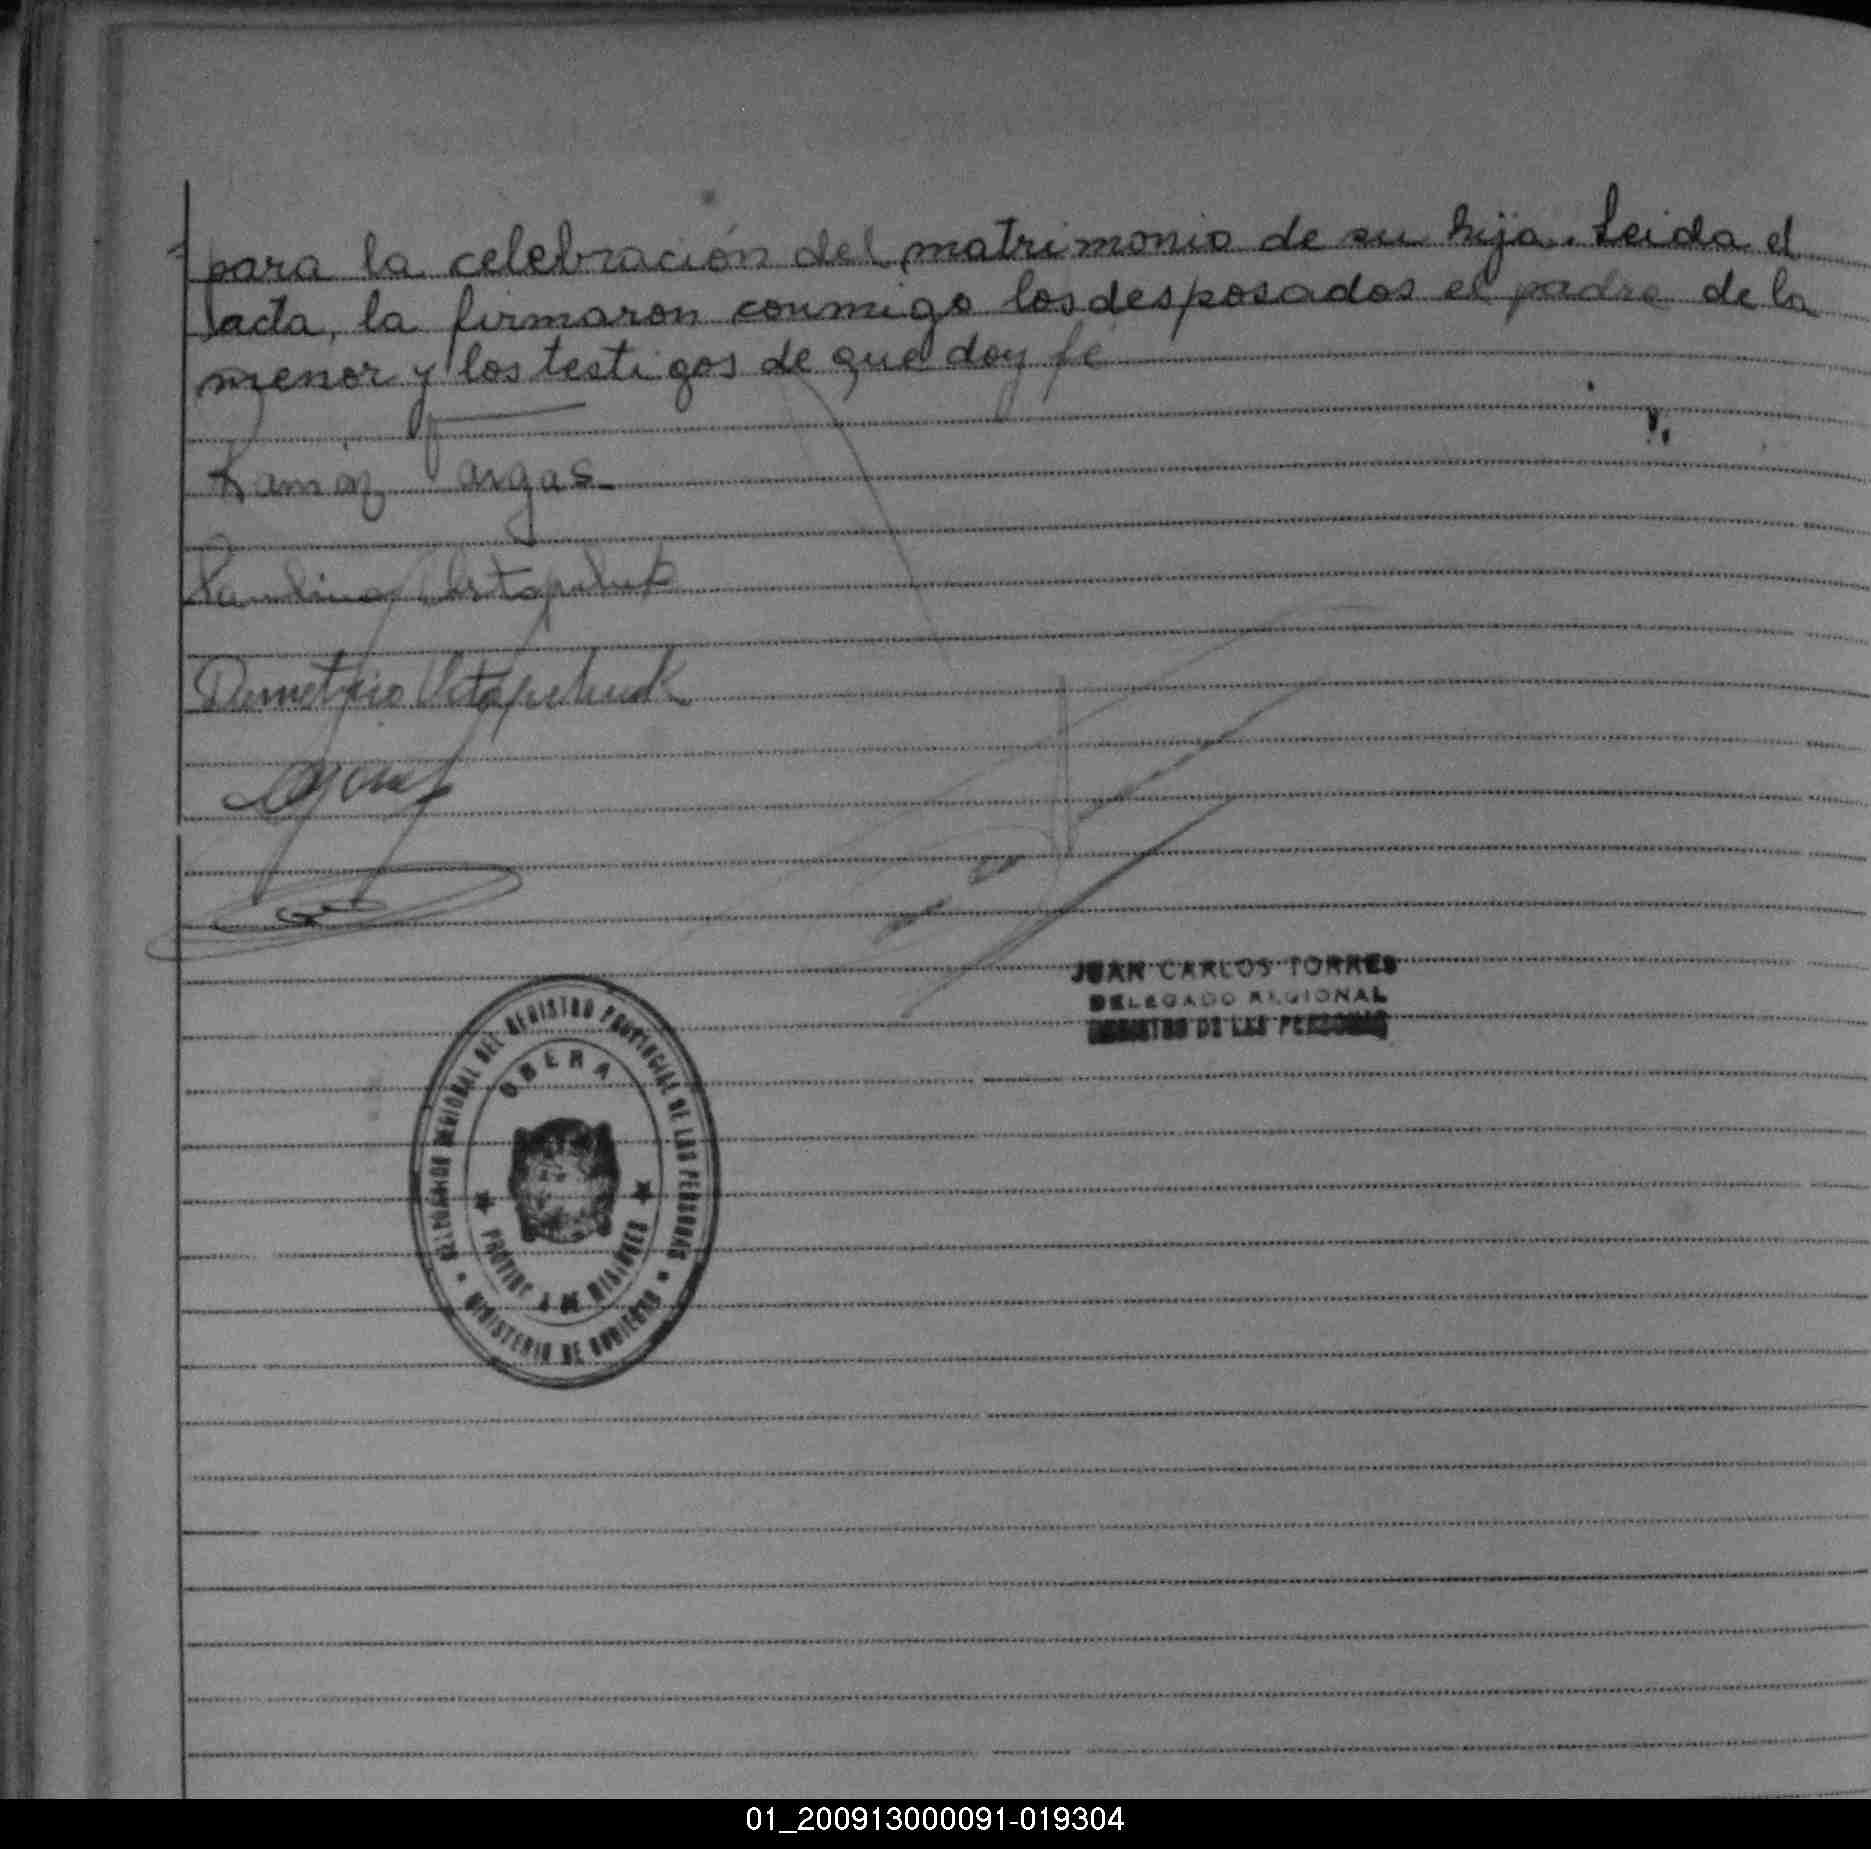 para la celebración del matrimonio de su hija. Leida el
acta, la firmaron conmigo los desposados el padre de la
menor y los testigos de que doy fé
Ramón Vargas
Paulina
Demetrio
JUAN CARLOS TORRES
DELEGADO REGIONAL
REGISTRO DE LAS PERSONAS
DELEGACION REGIONAL DEL REGISTRO PROVINCIAL DE LAS PERSONAS
OBERA
PROVINCIA DE MISIONES
MINISTERIO DE GOBIERNO
01_200913000091-019304